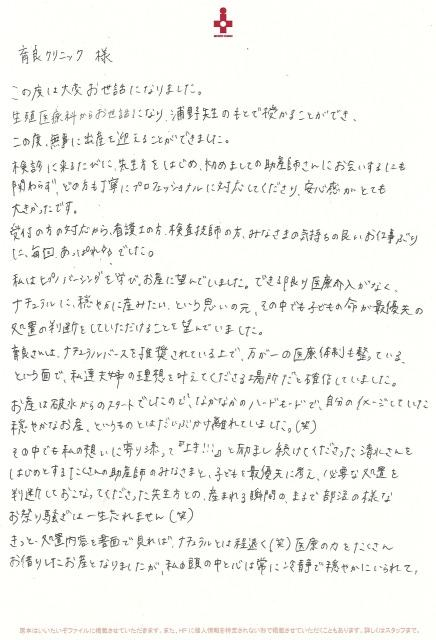 育良クリニック 様
この度は大変お世話になりました。
生殖医療科からお世話になり、浦野先生のもとで授かることができ、
この度、無事に出産を迎えることができました。
検診に来るたびに、先生方をはじめ、初めましての助産師さんにお会いするにも
関わらず、どの方も丁寧にプロフェッショナルに対応してくださり、安心感がとても
大きかったです。
受付の方の対応から、看護士の方、検査技師の方、みなさまの気持ちの良いお仕事ぶり
に、毎回、あっぱれ でした。
私はヒプノバーシングを学び、お産に望んでいました。できる限り医療介入がなく、
ナチュラルに、穏やかに産みたい、という思いの元、その中でも子どもの命が最優先の
処置の判断をしていただけることを望んでいました。
育良さんは、ナチュラルバースを推奨されている上で、万が一の医療体制も整っている、
という面で、私達夫婦の理想を叶えてくださる場所だと確信していました。
お産は破水からのスタートでしたので、なかなかのハードモードで、自分のイメージしていた
穏やかなお産、というものとはだいぶかけ離れていました。(笑)
その中でも私の想いに寄り添って『上手!!!』と励まし続けてくださった清礼さんを
はじめとするたくさんの助産師のみなさまと、子どもを最優先に考え、必要な処置を
判断しておこなってくださった先生方との、産まれる瞬間の、まるで部活の様な
お祭り騒ぎは一生忘れません(笑)
きっと、処置内容を書面で見れば、ナチュラルとは程遠く(笑)医療の力をたくさん
お借りしたお産となりましたが、私の頭の中と心は常に冷静で穏やかにいられて、
原本はいいたいぞファイルに掲載させていただきます。また、HPに個人情報を特定されない形で掲載させていただくこともあります。詳しくはスタッフまで。